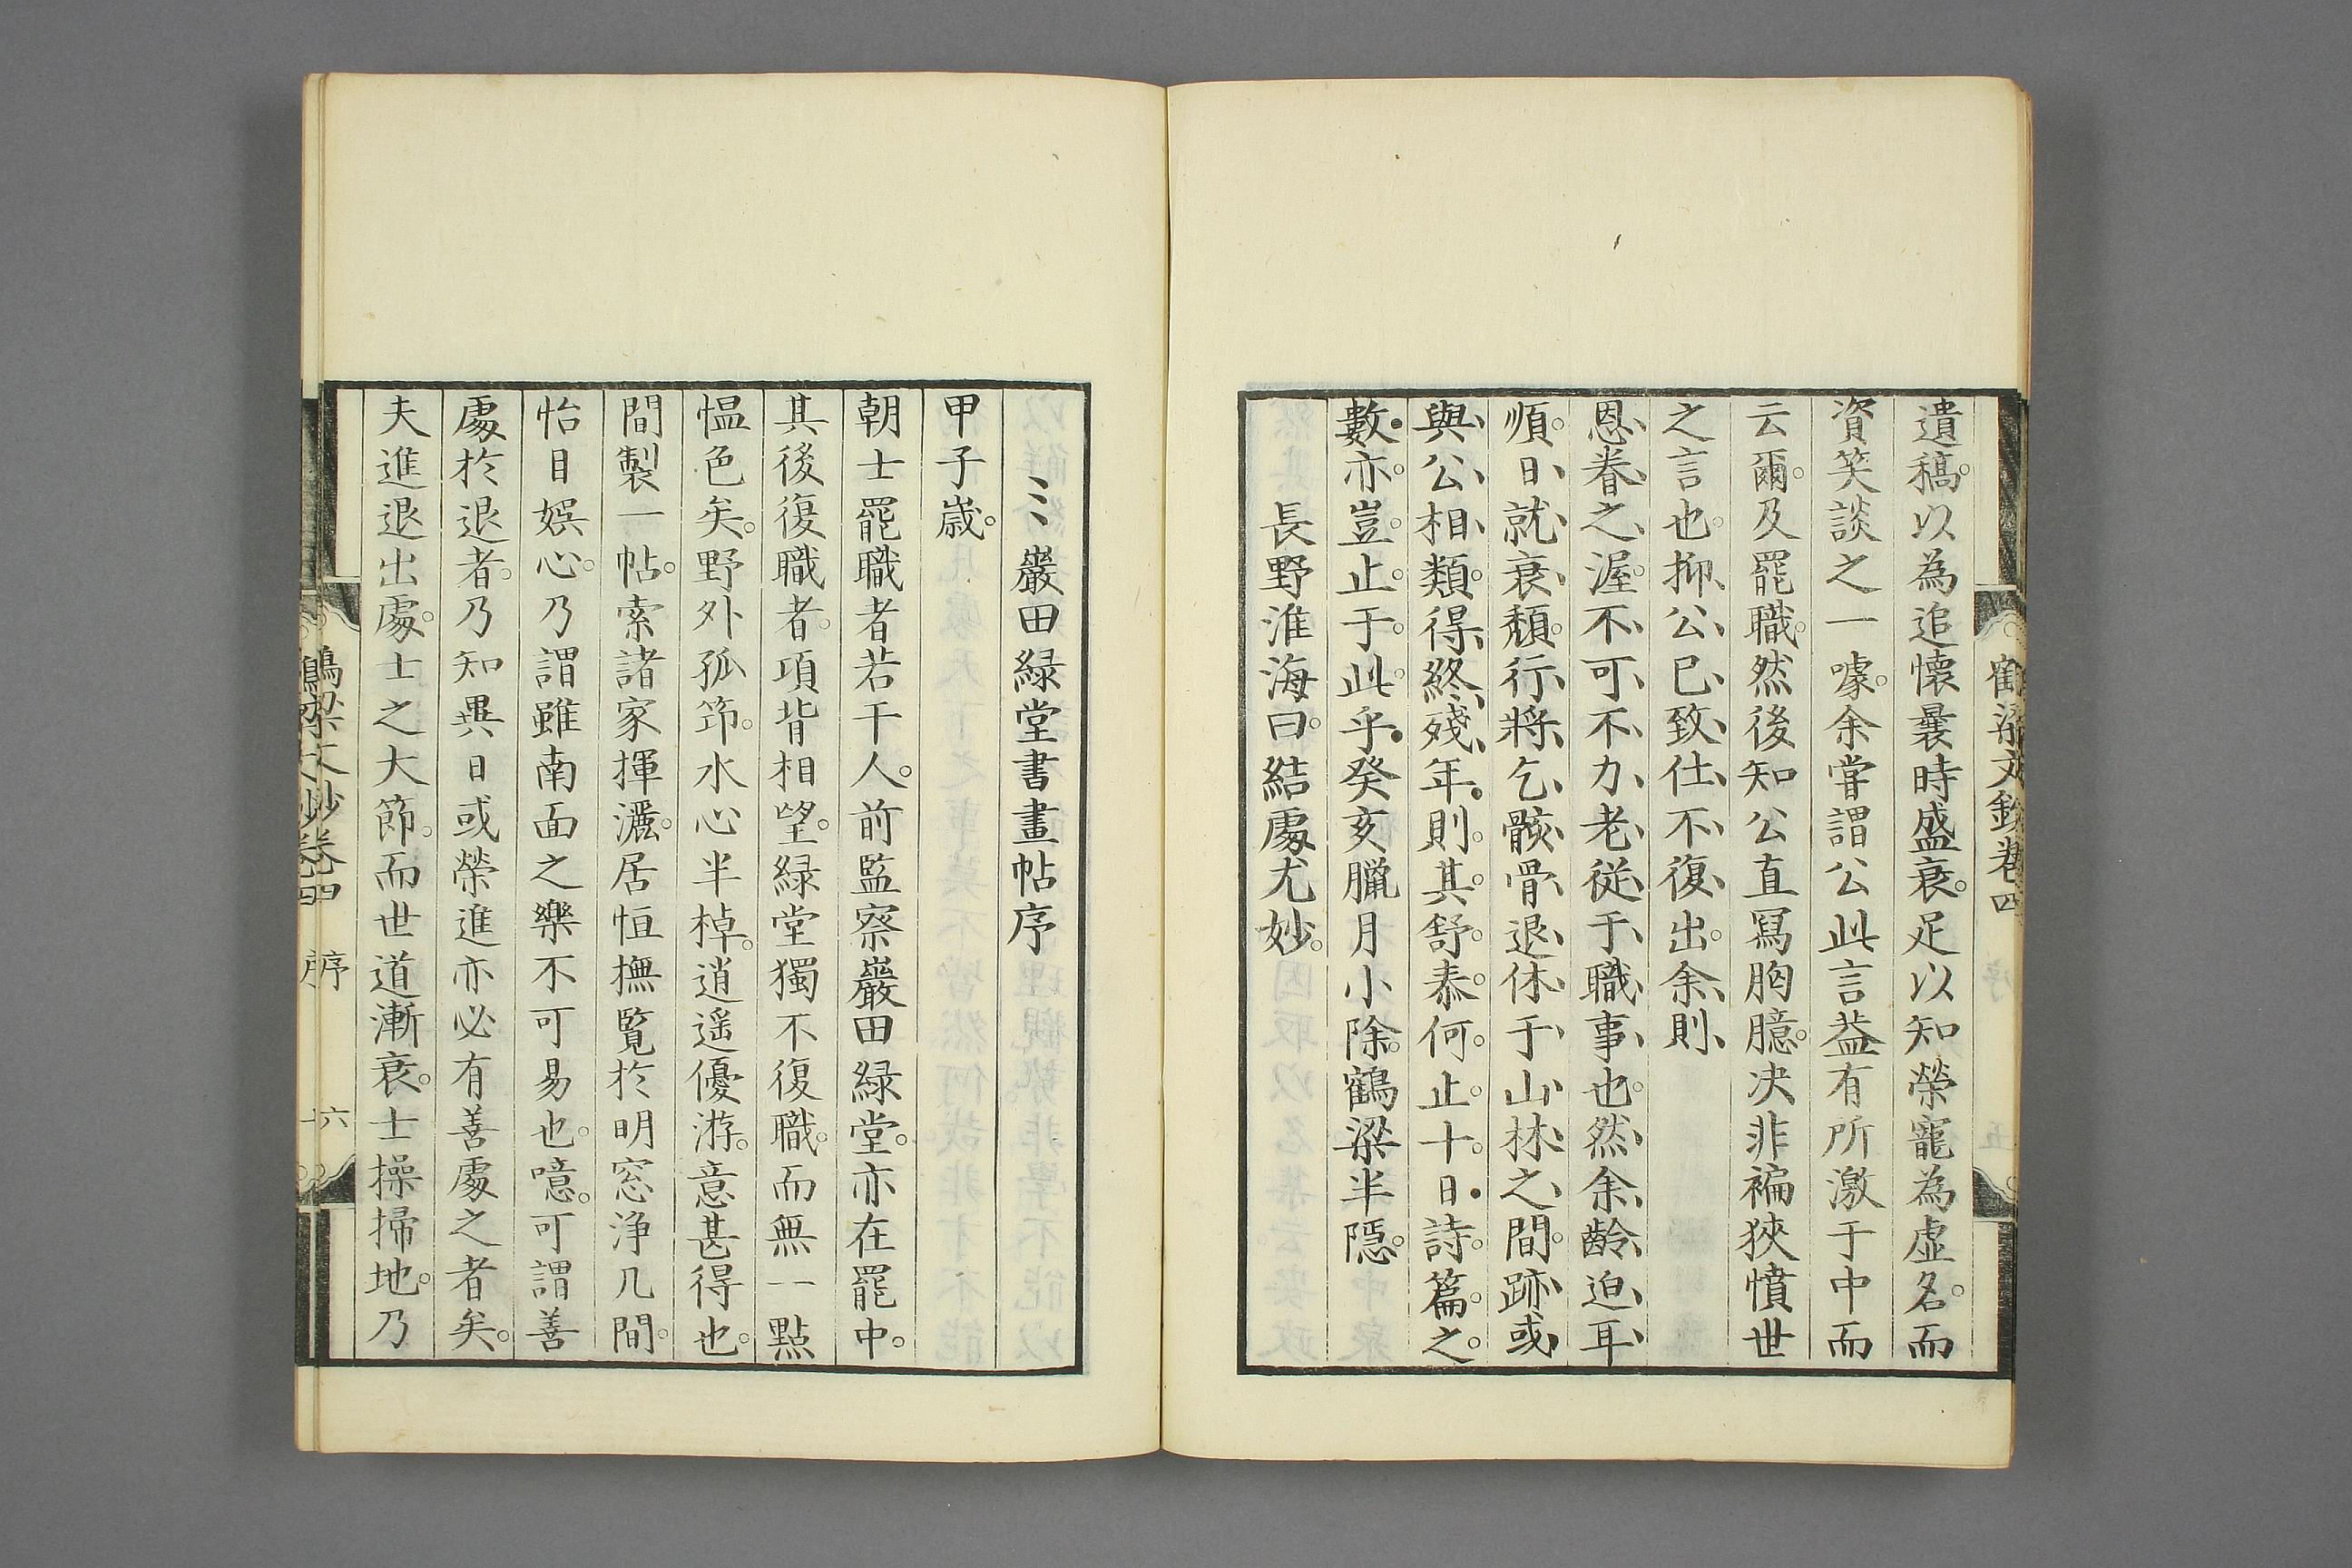 鶴梁文鈔卷四
遺稿。以為追懷曩時盛衰。足以知榮寵為虛名。而
資笑談之一噱。余嘗謂公此言葢有所激于中而
云爾。及罷職。然後知公直寫胸臆。决非褊狹憤世
之言也。抑、公、已、致、仕、不、復、出。余、則、
恩、眷、之、渥。不、可、不、力、老、從、于、職、事、也。然、余、齡、迫、耳、
順。日、就、衰、頽。行、將、乞、骸、骨、退、休、于、山、林、之、間。跡、或、
與、公、相、類。得、終、殘、年。則。其。舒。泰。何。止。十。日。詩。篇。之。
數。亦。豈。止。于。此。乎。癸亥臘月小除。鶴梁半隱。
長野淮海曰。結處尤妙。
ミミ巖田綠堂書畫帖序
甲子歳。
朝士罷職者若干人。前監察巖田綠堂。亦在罷中。
其後復職者。項背相望。綠堂獨不復職。而無一點
慍色矣。野外孤筇。水心半棹。逍遥優游。意甚得也。
間製一帖。索諸家揮灑。居恒撫覽於明窓浄几間。
怡目娯心。乃謂雖南面之樂不可易也。噫。可謂善
處於退者。乃知異日或榮進亦必有善處之者矣。
夫進退出處。士之大節。而世道漸衰。士操掃地。乃
鶴梁文鈔卷四 序 六